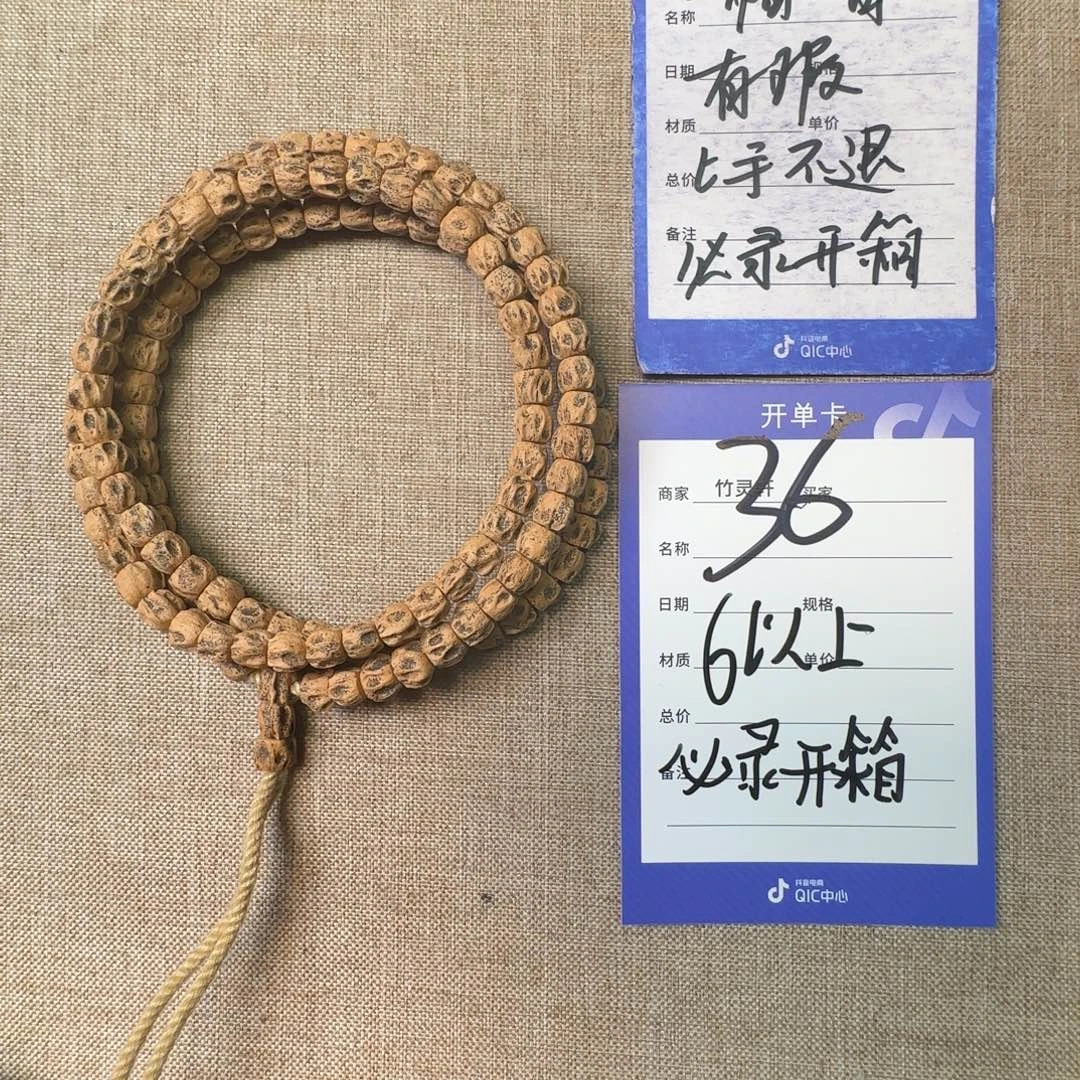 名称
日期 有瑕
材质 单价
总价 上手不退
备注
必录开箱
抖音电商
QIC中心
开单卡
36
商家 竹灵轩 买家
名称
日期 规格
6以上
材质 单价
总价
备注 必录开箱
抖音电商
QIC中心